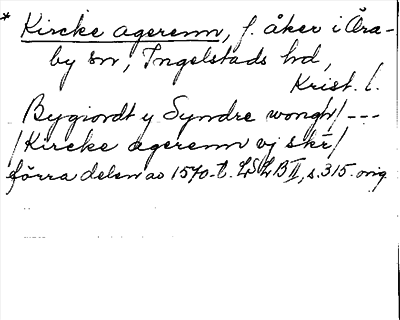 * Kircke agerenn, f. åker i Öra-
by sn, Ingelstads hd,
Krist. l.
Bygiordt y Syndre wongh /---
/Kircke agerenn vj skr/
förra delen av 1570-t. LSLB II, s. 315. orig.